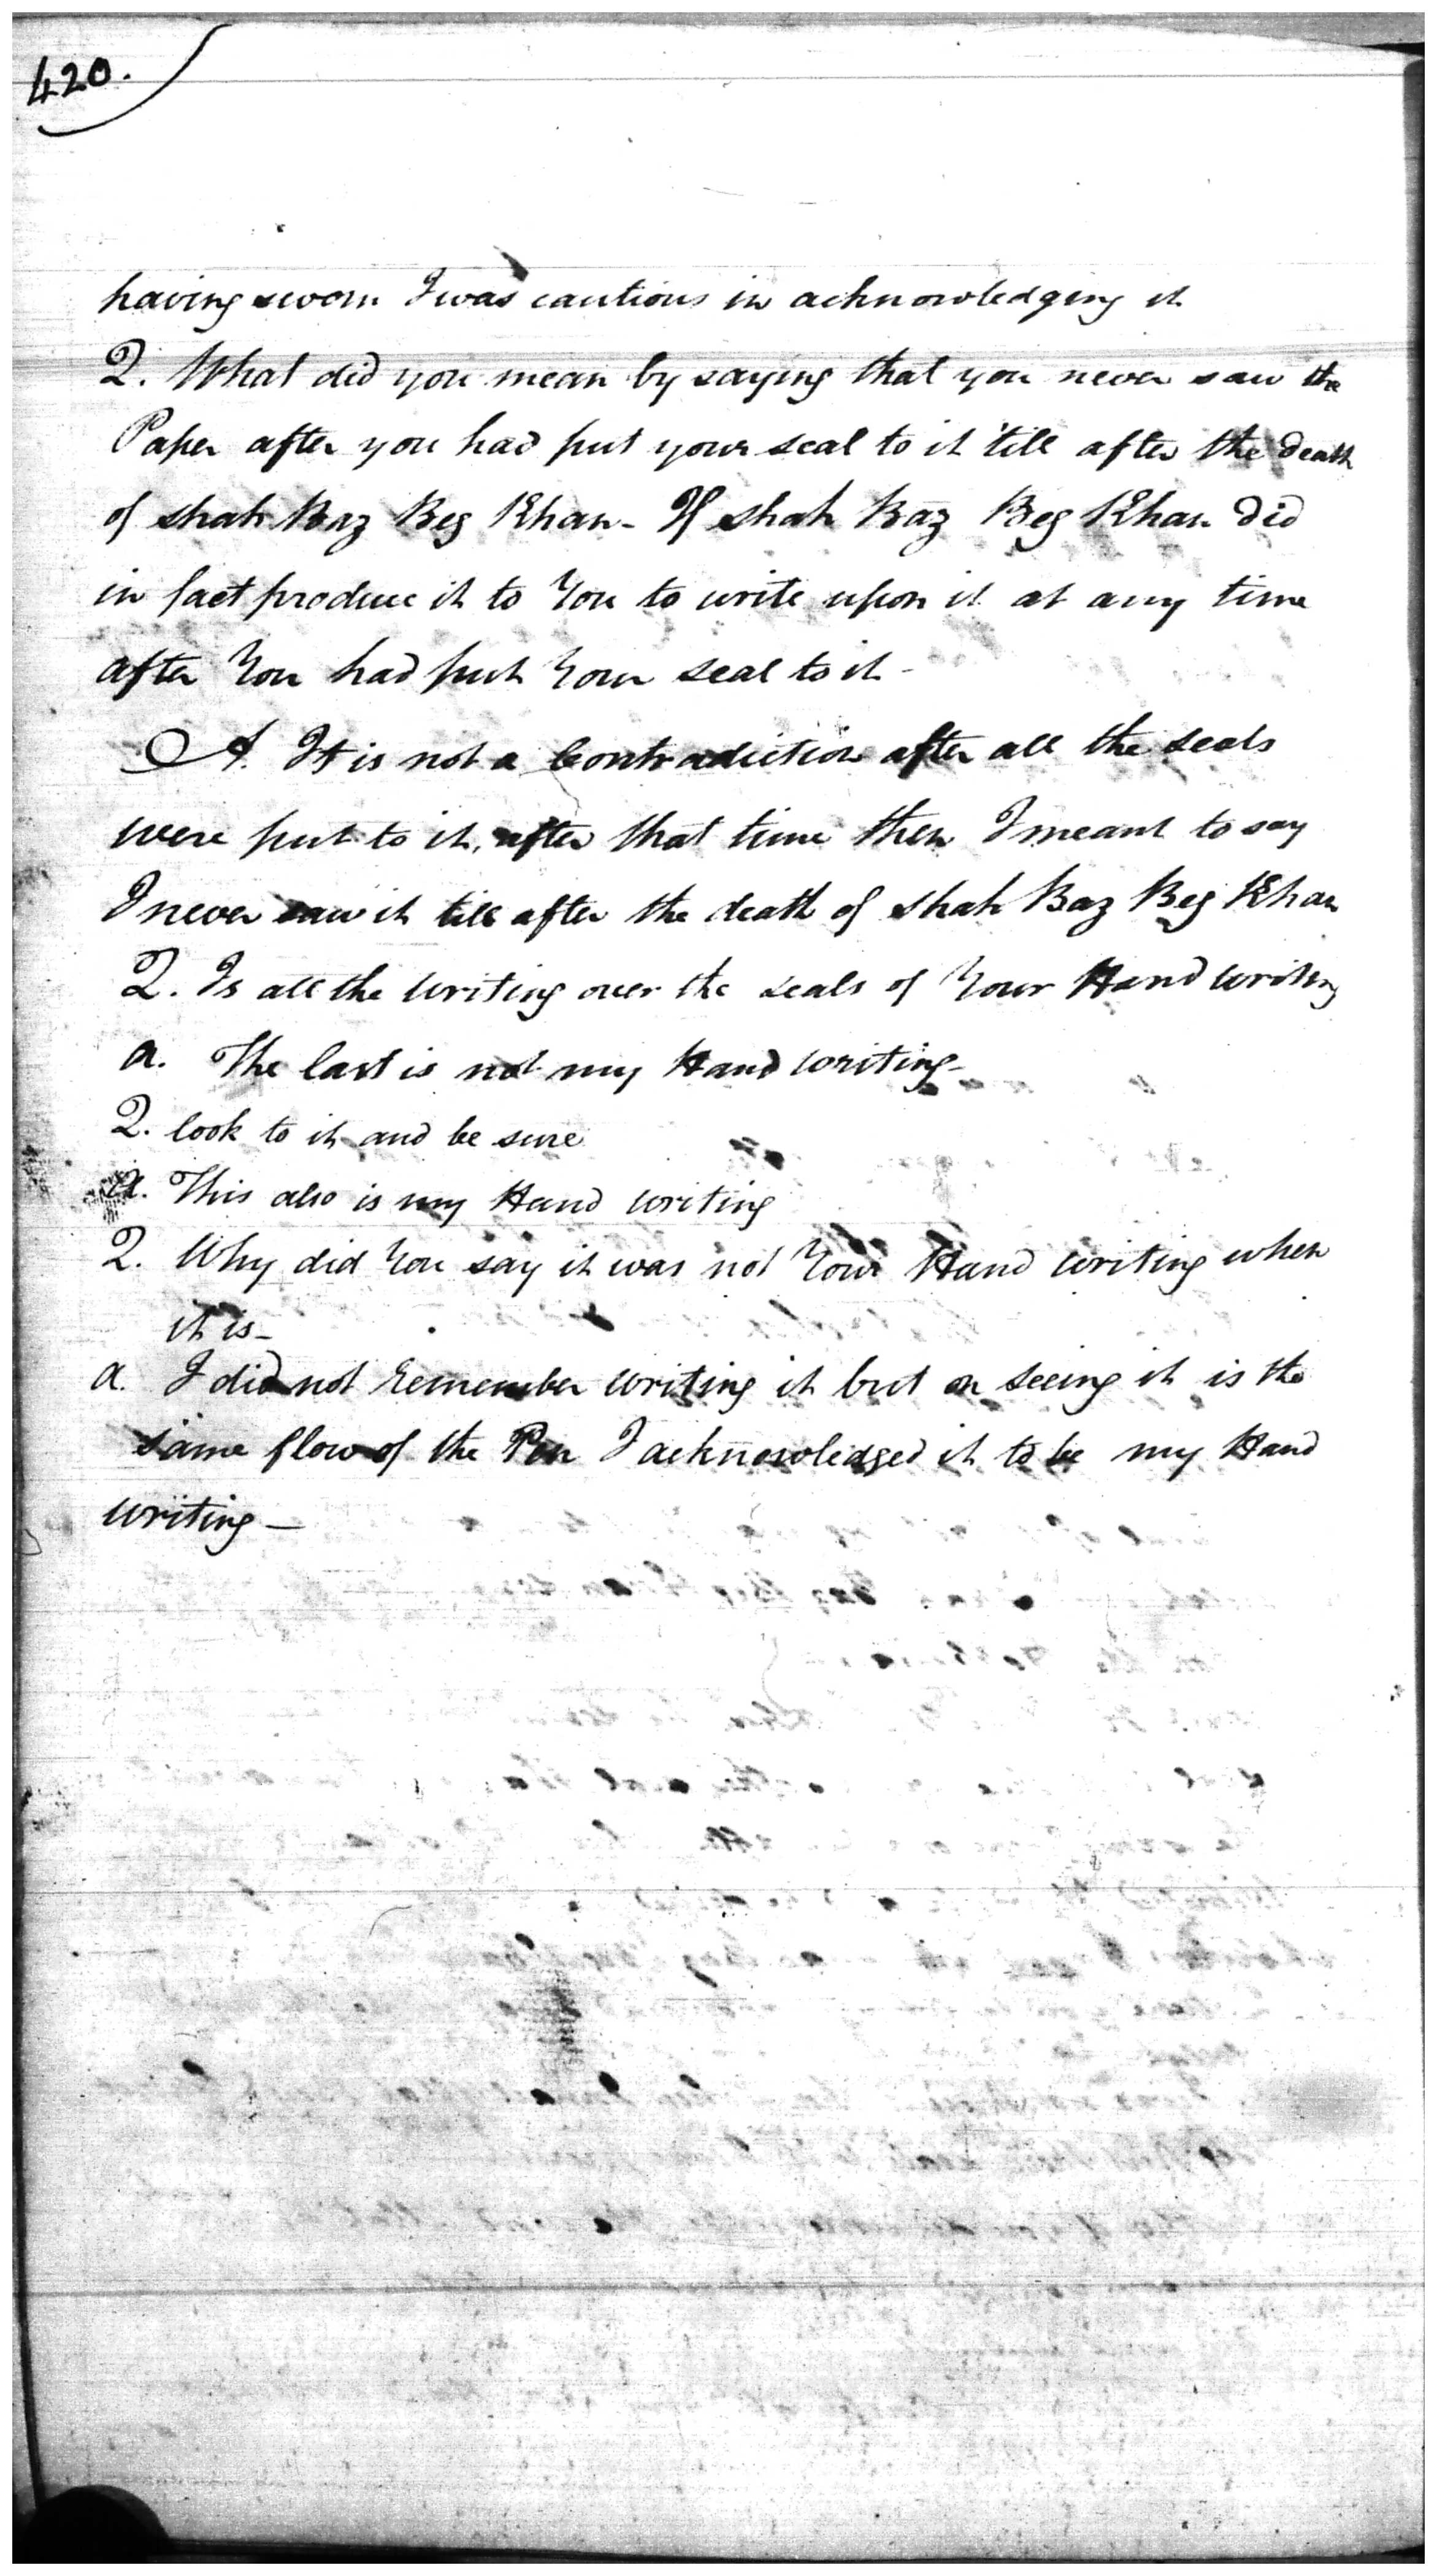 420.
having sworn I was cautious in acknowledging it
Q. What did you mean by saying that you never saw the
Paper after you had put your seal to it till after the death
of shah Baz Beg Khan - If shah Baz Beg Khan did
in fact produce it to You to write upon it at any time
after You had put Your seal to it -
A. It is not a Contradiction after all the seals
were put to it, after that time then I meant to say
I never saw it till after the death of shah Baz Beg Khan
Q. Is all the writing over the seals of Your Hand writing
a. The last is not my Hand writing -
Q. look to it and be sure
a. This also is my Hand writing
Q. Why did You say it was not Your Hand writing when
it is -
a. I did not remember writing it but on seeing it is the
same flow of the Pen I acknowledged it to be my Hand
writing —